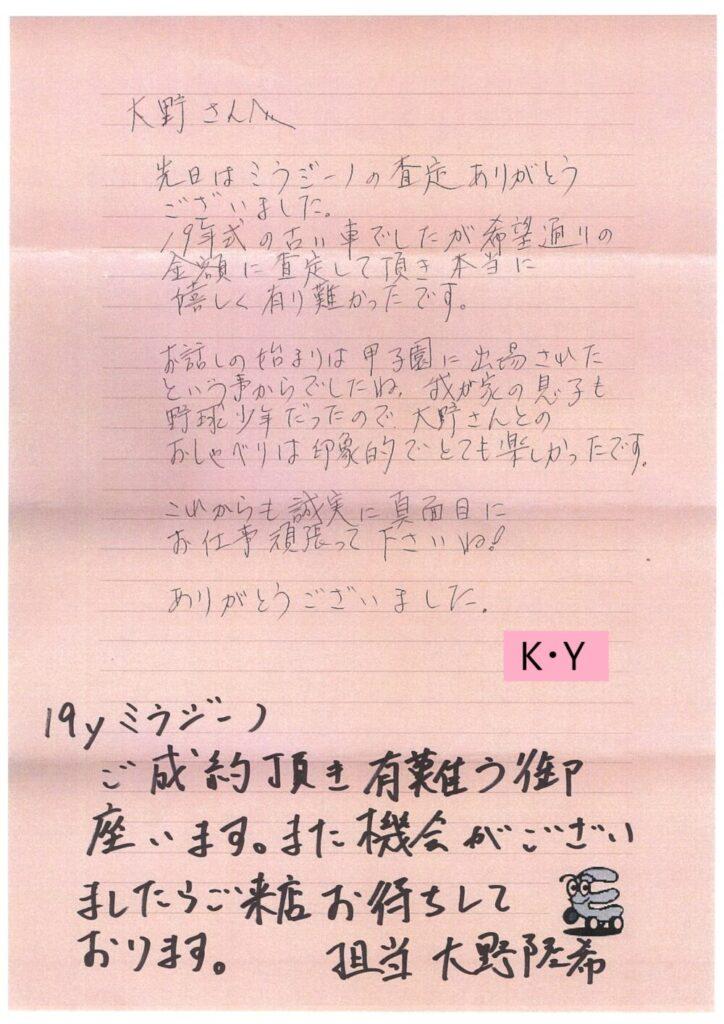 大野さんへ
先日はミラジーノの査定ありがとう
ございました。
19年式の古い車でしたが希望通りの
金額に査定して頂き本当に
嬉しく有り難かったです。
お話しの始まりは甲子園に出場された
という事からでしたね。我が家の息子も
野球少年だったので大野さんとの
おしゃべりは印象的でとても楽しかったです。
これからも誠実に真面目に
お仕事頑張って下さいね!
ありがとうございました。
K・Y
19yミラジーノ
ご成約頂き有難う御
座います。また機会がござい
ましたらご来店お待ちして
おります。 担当 大野陸希